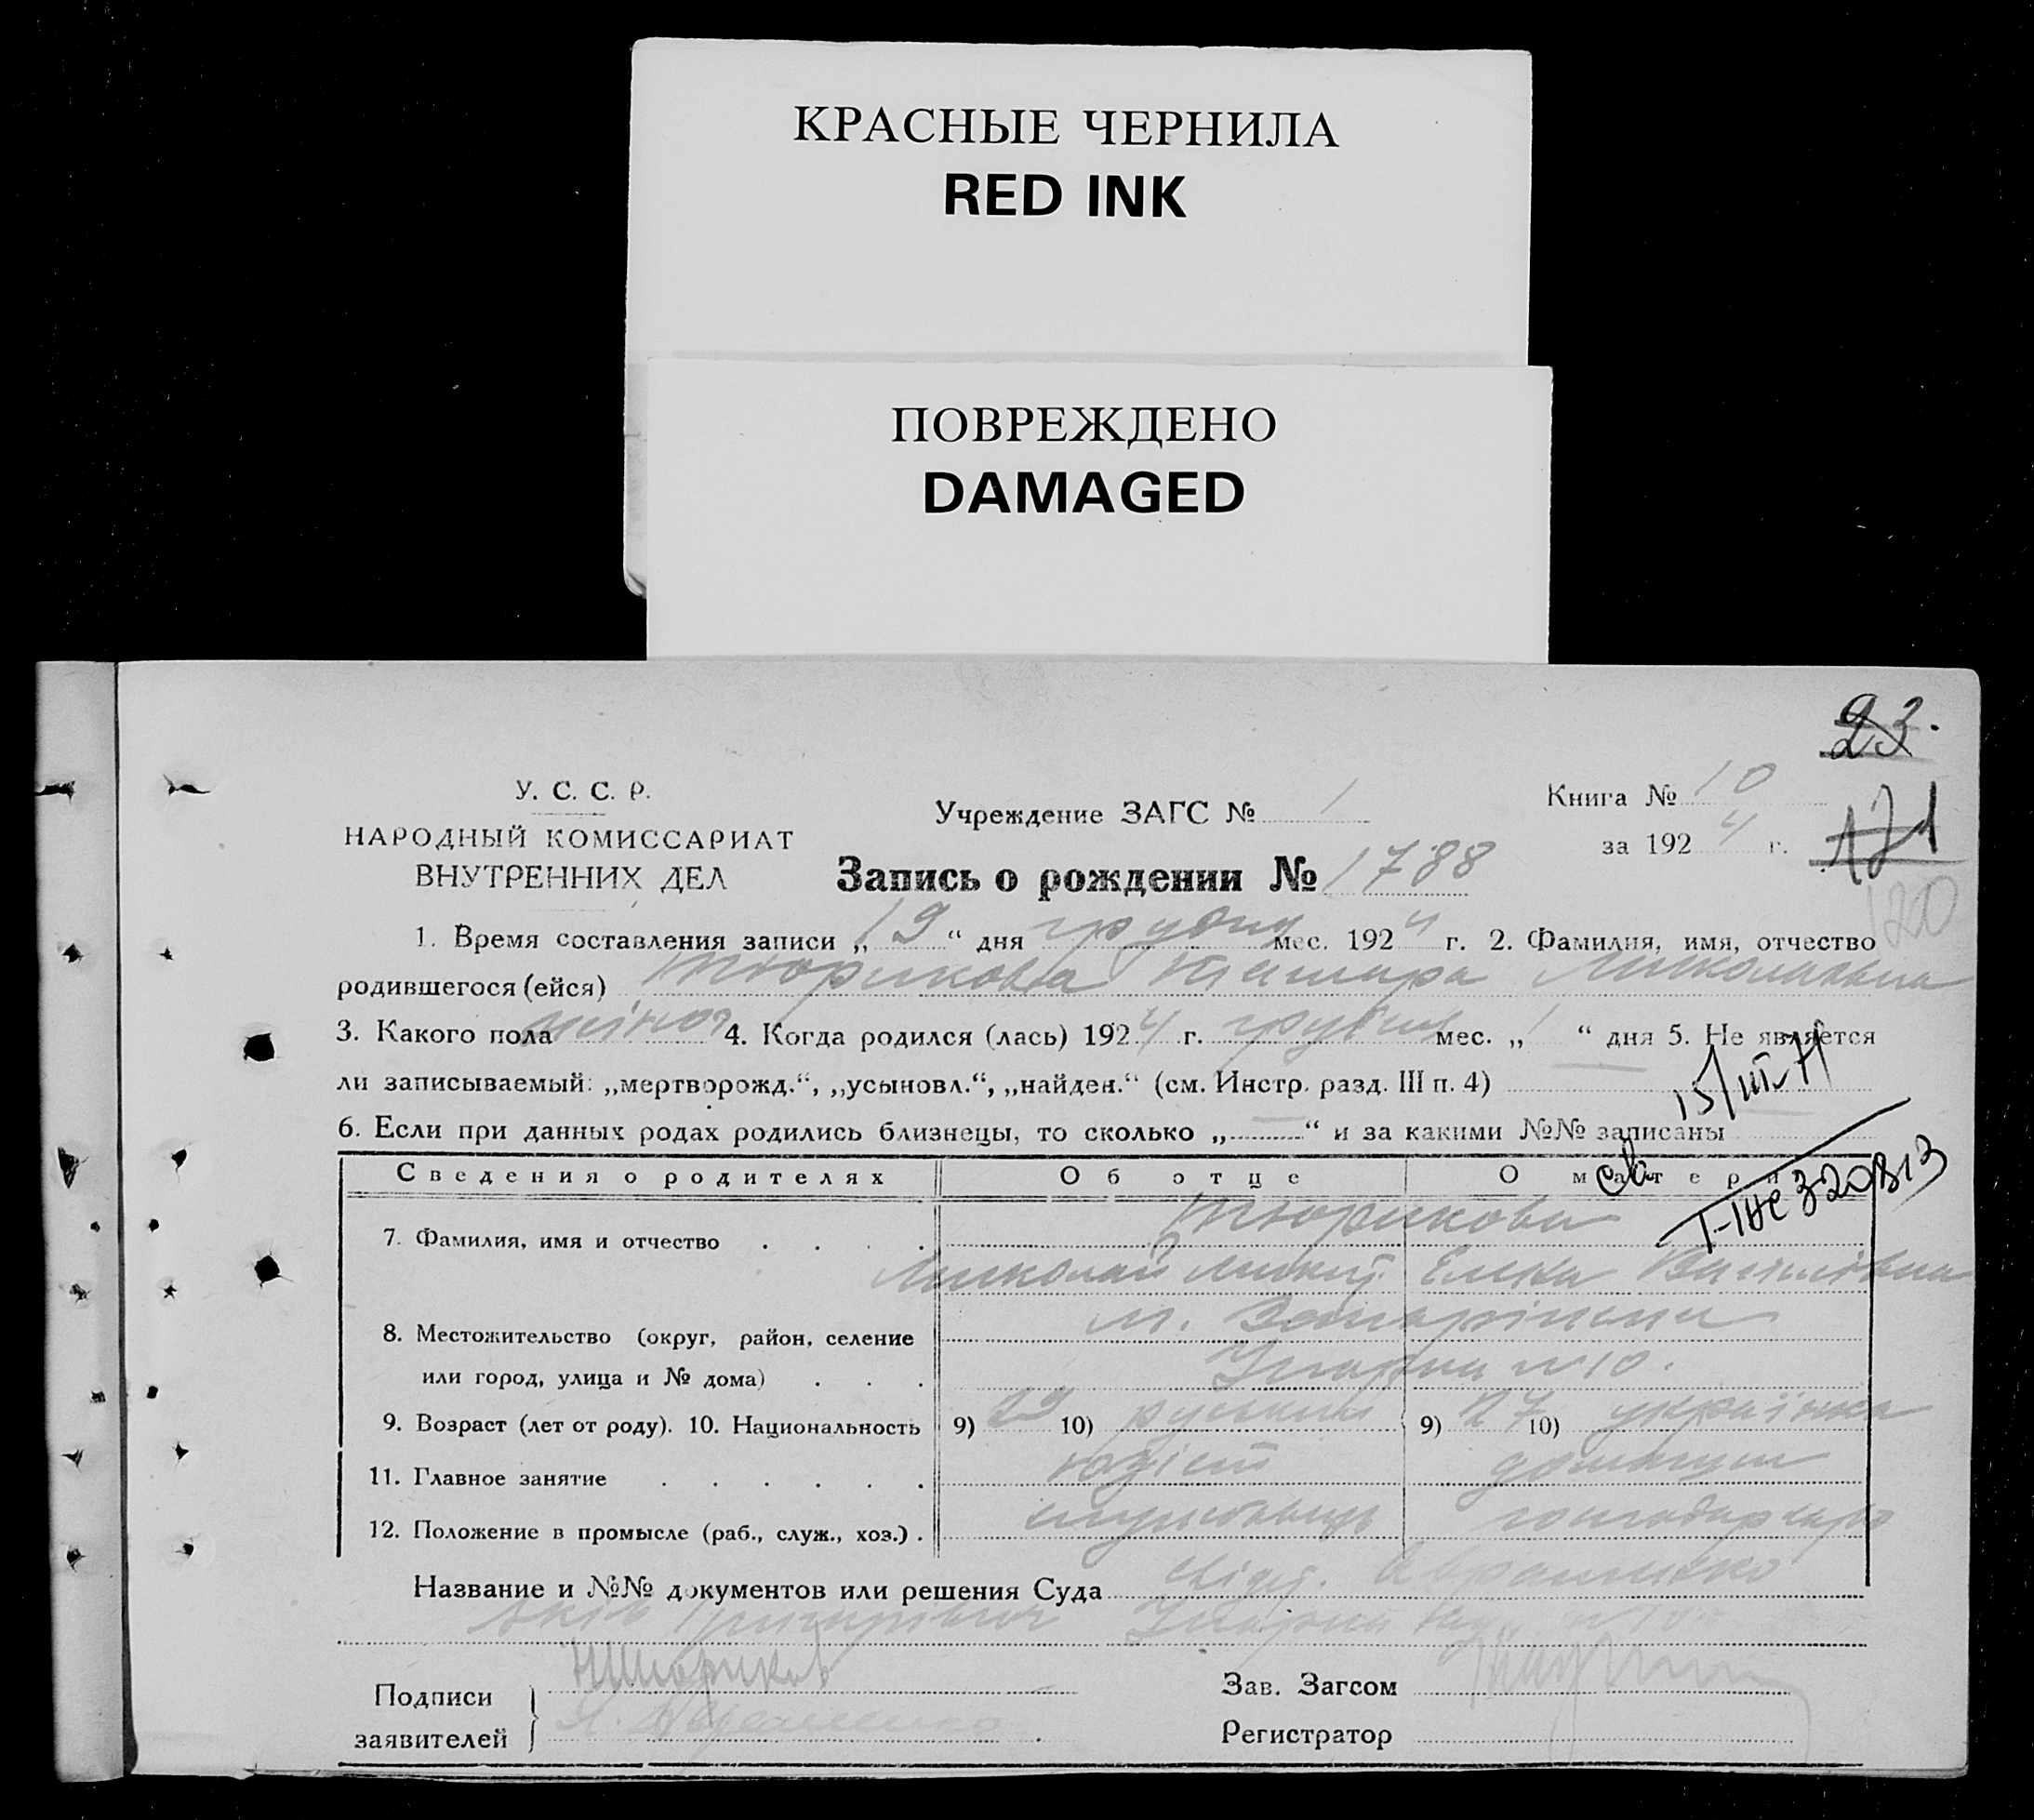 КРАСНЫЕ ЧЕРНИЛА
RED INK
ПОВРЕЖДЕНО
DAMAGED
23.
У. С. С. Р.
НАРОДНЫЙ КОМИССАРИАТ
ВНУТРЕННИХ ДЕЛ
Учреждение ЗАГС № 1
Книга № 10
за 1924 г.
171
120
Запись о рождении № 1788
1. Время составления записи „19“ дня грудня мес. 1924 г. 2. Фамилия, имя, отчество
родившегося (ейся) Тюрикова Тамара Миколаївна
3. Какого пола жіноч 4. Когда родился (лась) 1924 г. грудня мес. „1“ дня 5. Не является
ли записываемый: „мертворожд.“, „усыновл.“, „найден.“ (см. Инстр. разд. III п. 4)
15/III-71
6. Если при данных родах родились близнецы, то сколько „—“ и за какими №№ записаны
св
I-ЖС 320813
Сведения о родителях Об отце О матери
7. Фамилия, имя и отчество Тюрикови
Миколай
8. Местожительство (округ, район, селение
или город, улица и № дома) № 10.
9. Возраст (лет от роду). 10. Национальность 9) 10) руський 9) 27 10) українка
11. Главное занятие
12. Положение в промысле (раб., служ., хоз.)
Название и №№ документов или решения Суда
Яків Григорович
Подписи
заявителей
Тюриков
Зав. Загсом
Регистратор